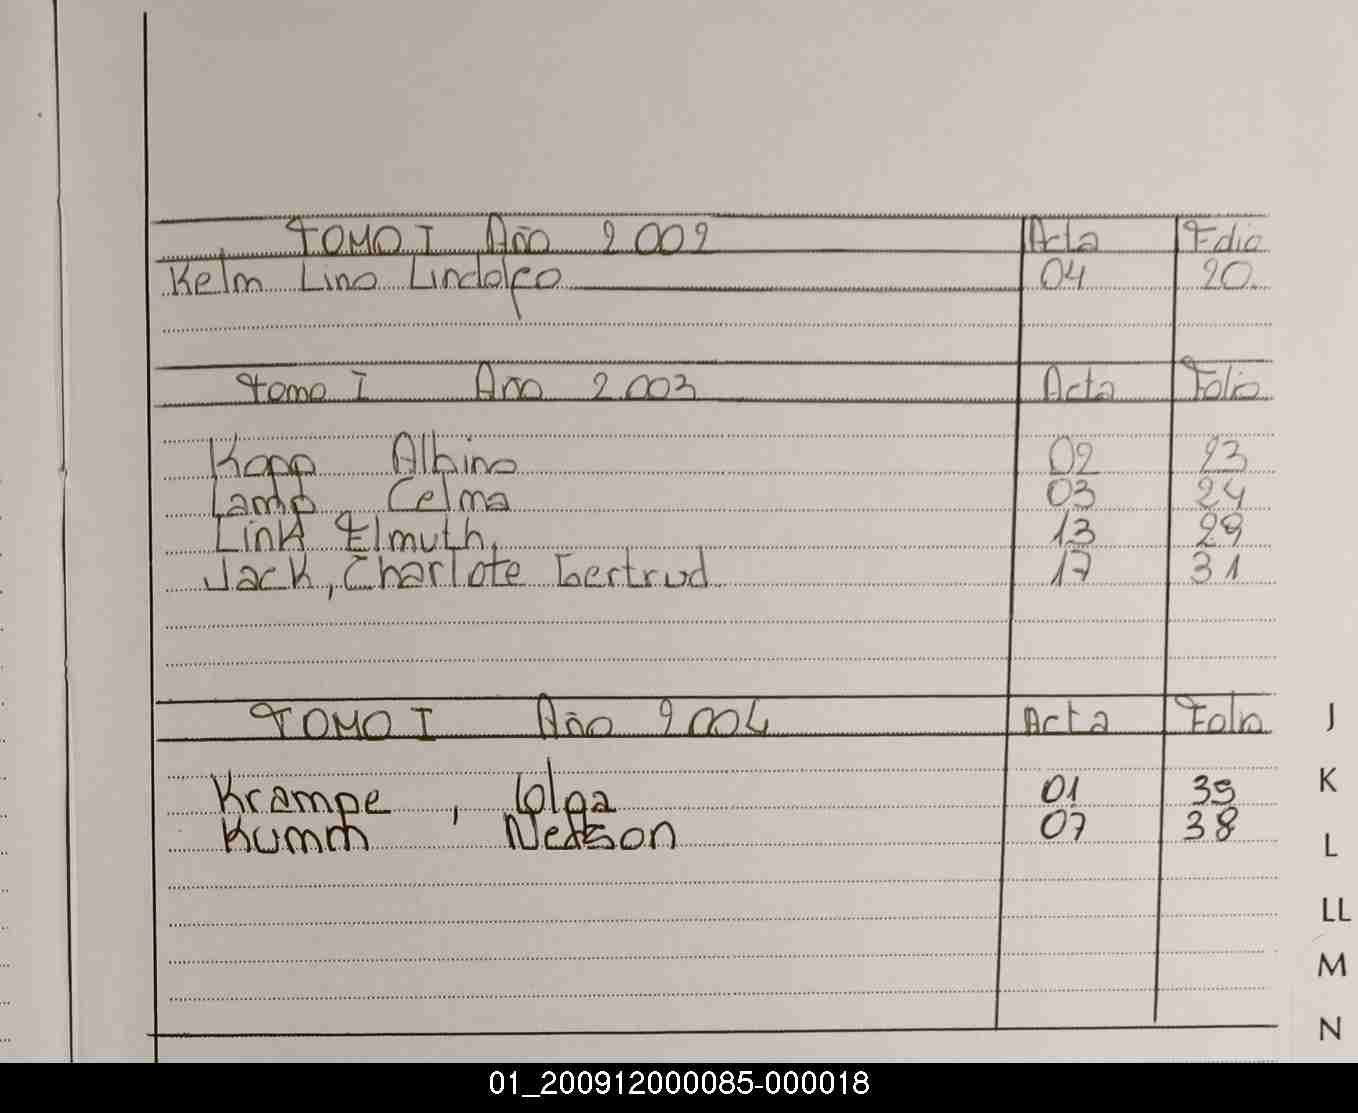 TOMO I Año 2002 Acta Folio
Kelm Lino Lindolfo 04 20
Tomo I Año 2003 Acta Folio
Kopp Albino 02 23
Lamp Celma 03 24
Link Elmuth, 13 29
Jack, Charlote Gertrud 17 31
TOMO I Año 2004 Acta Folio
J
Krampe , Olga 01 35
K
Kumm Nelson 07 38
L
LL
M
N
01_200912000085-000018